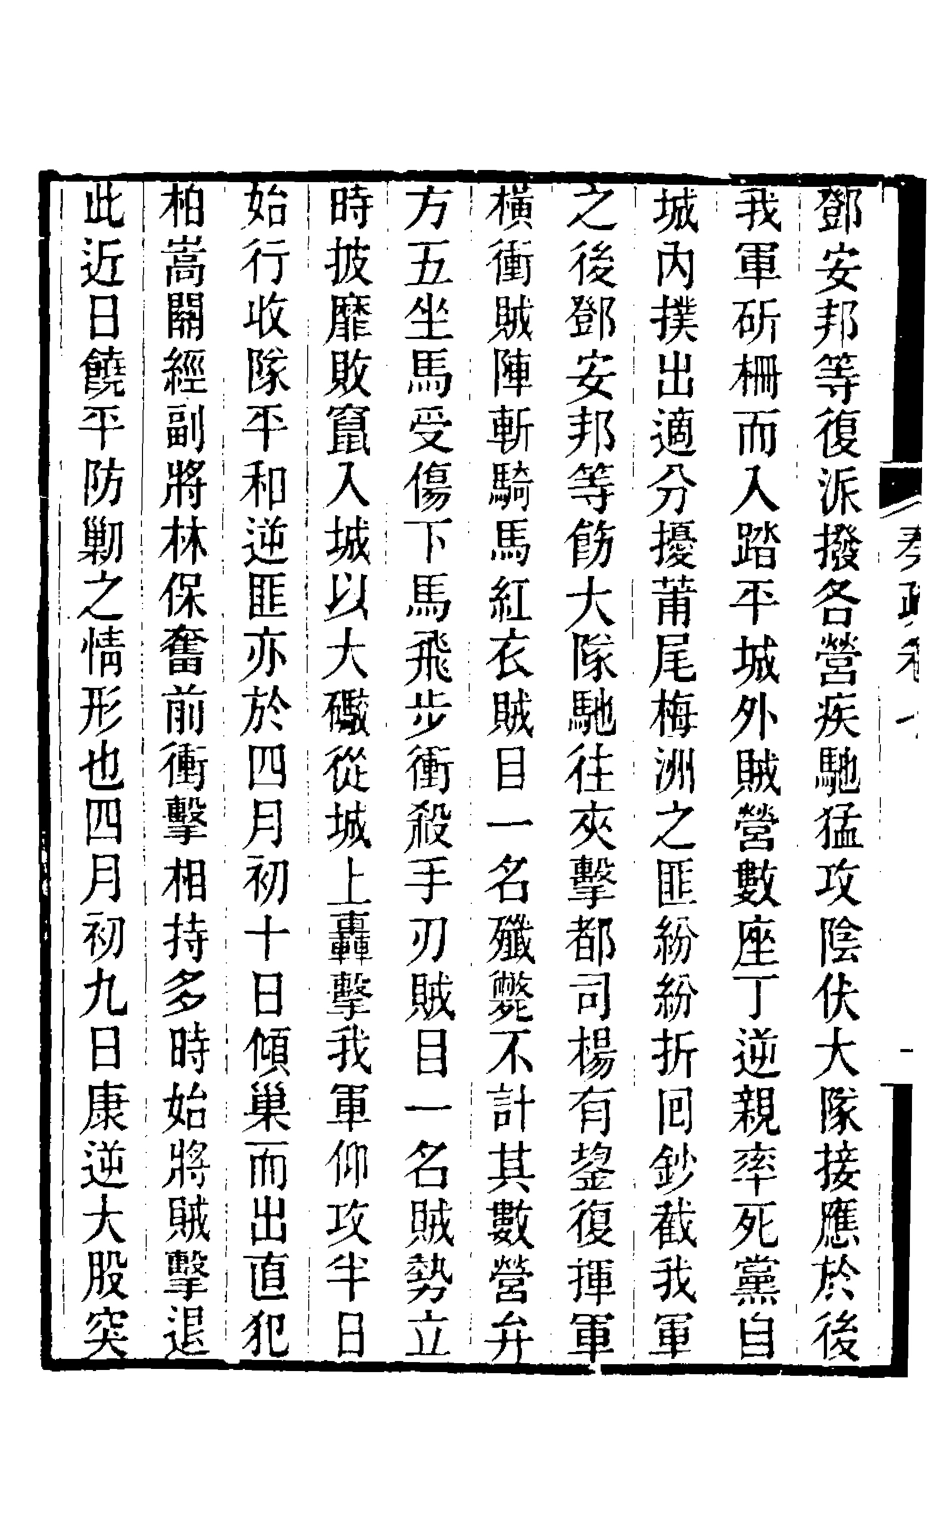 鄧安邦等復派撥各營疾馳猛攻陰伏大隊接應於後
我軍斫柵而入踏平城外賊營數座丁逆親率死黨自
城內撲出適分擾莆尾梅洲之匪紛紛折回鈔截我軍
之後鄧安邦等飭大隊馳往夾擊都司楊有鋆復揮軍
橫衝賊陣斬騎馬紅衣賊目一名殲斃不計其數營弁
方五坐馬受傷下馬飛步衝殺手刃賊目一名賊勢立
時披靡敗竄入城以大礮從城上轟擊我軍仰攻半日
始行收隊平和逆匪亦於四月初十日傾巢而出直犯
柏嵩關經副將林保奮前衝擊相持多時始將賊擊退
此近日饒平防勦之情形也四月初九日康逆大股突